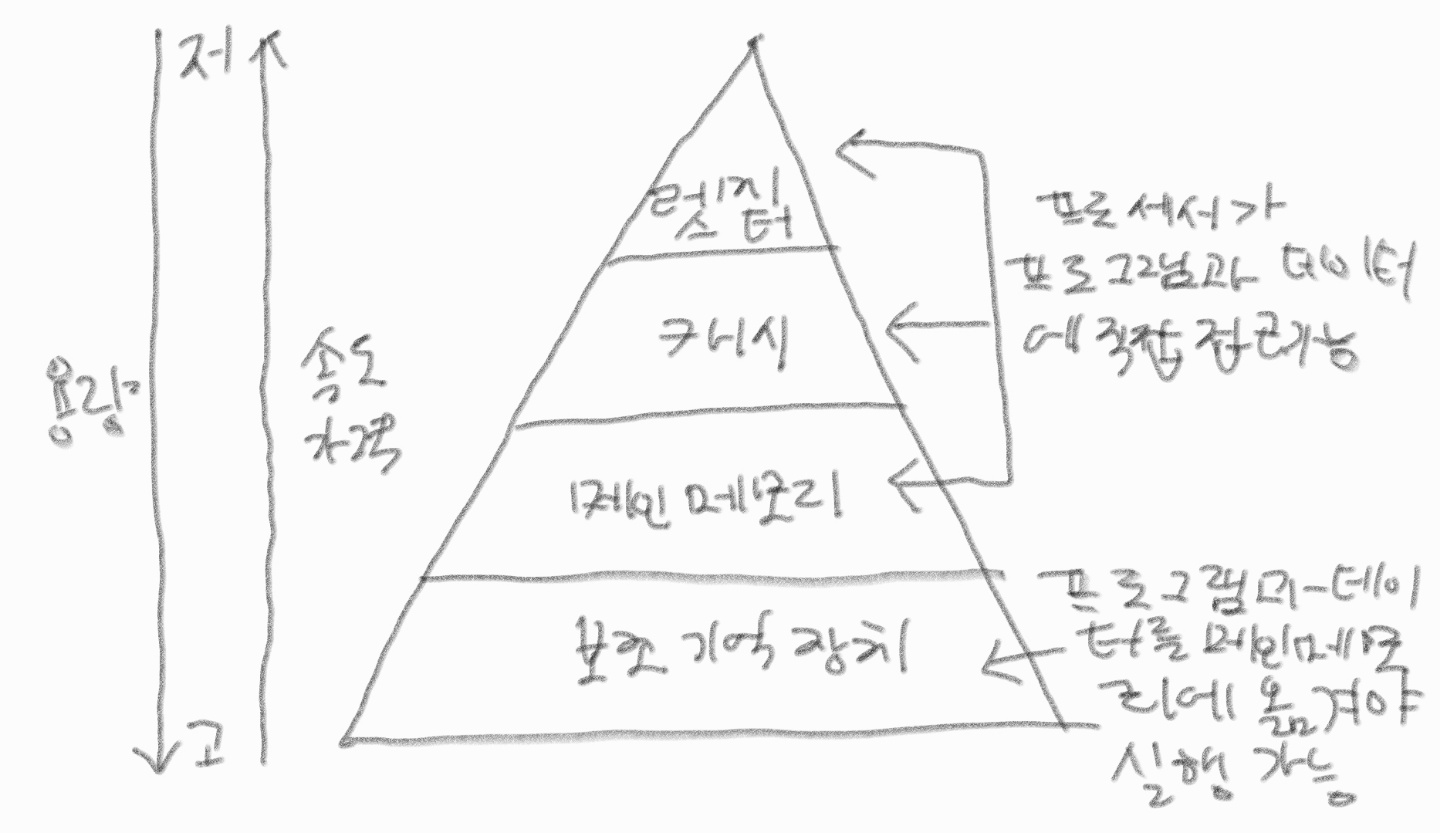 저
용량
속도
가격
고
렛지터
캐시
메인 메모리
보조 기억 장치
프로세서가
프로그램과 데이터
에 직접 접근가능
프로그램과 데이
터를 메인메모
리에 옮겨야
실행 가능